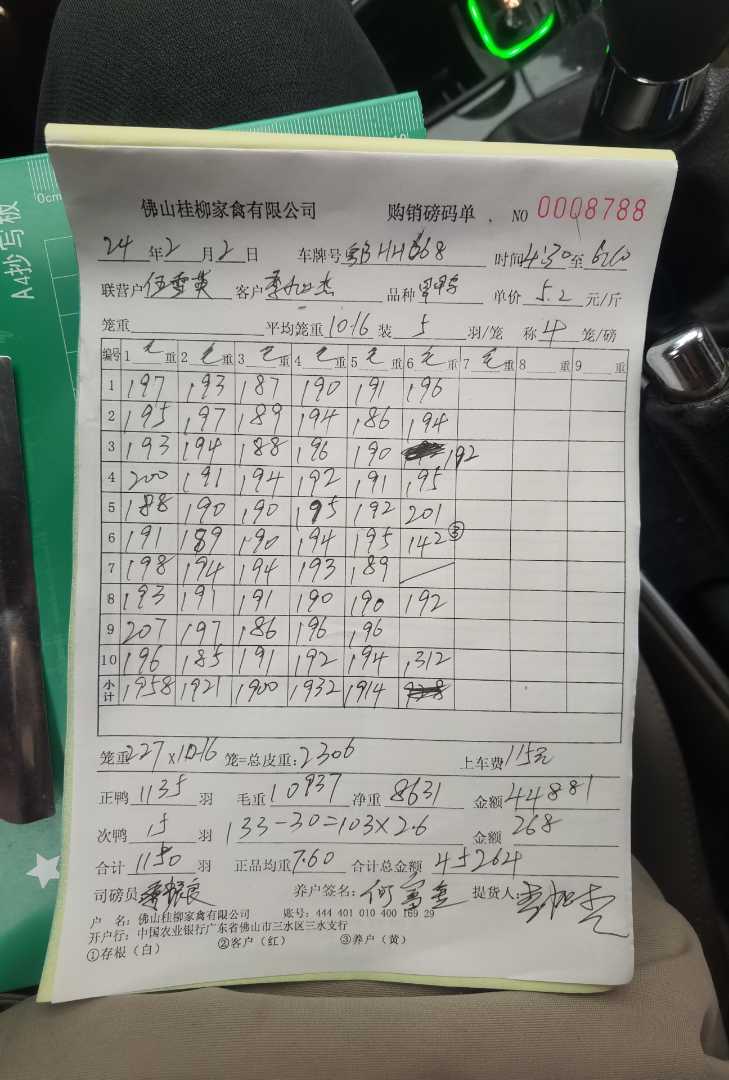 A4抄写板
0cm
佛山桂柳家禽有限公司 购销磅码单 NO 0008788
24年2月2日 车牌号 HH668 时间4:30至
联营户伍雪英 客户 品种 单价5.2元/斤
笼重 平均笼重10.16装5羽/笼 称4笼/磅
编号 1毛重 2毛重 3毛重 4毛重 5毛重 6毛重 7毛重 8重 9重
1 197 193 187 190 191 196
2 195 197 189 194 186 194
3 193 194 188 196 190 192
4 200 191 194 192 191 195
5 188 190 190 195 192 201
6 191 189 190 194 195 142 ③
7 198 194 194 193 189
8 193 191 191 190 190 192
9 207 197 186 196 196
10 196 185 191 192 194 1312
小计 1958 1921 1900 1932 1914
笼重227×10.16笼=总皮重:2306 上车费115元
正鸭1135羽 毛重10937净重8631 金额44881
次鸭15羽 133-30=103×2.6 金额268
合计1150羽 正品均重7.60 合计总金额45264
司磅员 养户签名: 何 提货人:
户 名: 佛山桂柳家禽有限公司 账号: 444 401 010 400 169 29
开户行: 中国农业银行广东省佛山市三水区三水支行
①存根(白) ②客户(红) ③养户(黄)